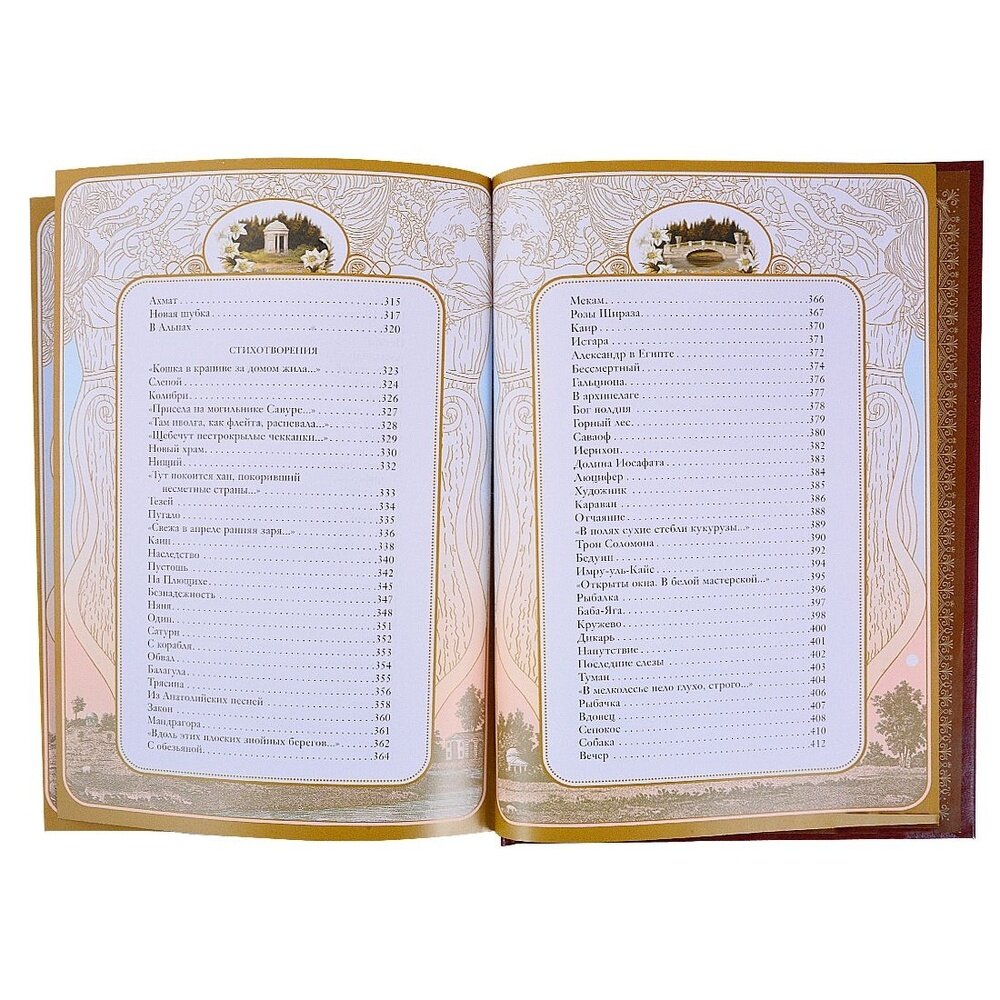 Ахмат 315
Новая шубка 317
В Альпах 320
СТИХОТВОРЕНИЯ
«Кошка в крапиве за домом жила...» 323
Слепой 324
Колибри 326
«Присела на могильнике Савуре...» 327
«Там иволга, как флейта, распевала...» 328
«Щебечут пестрокрылые чекканки...» 329
Новый храм 330
Нищий 332
«Тут покоится хан, покоривший
несметные страны...» 333
Тезей 334
Пугало 335
«Свежа в апреле ранняя заря...» 336
Каин 338
Наследство 340
Пустошь 342
На Плющихе 345
Безнадежность 347
Няня 348
Один 351
Сатурн 352
С корабля 353
Обвал 354
Балагула 355
Трясина 356
Из Анатолийских песней 358
Закон 360
Мандрагора 361
«Вдоль этих плоских знойных берегов...» 362
С обезьяной 364
Мекам 366
Розы Шираза 367
Каир 370
Истара 371
Александр в Египте 372
Бессмертный 374
Гальциона 376
В архипелаге 377
Бог полдня 378
Горный лес 379
Саваоф 380
Иерихон 382
Долина Иосафата 383
Люцифер 384
Художник 385
Караван 386
Отчаяние 388
«В полях сухие стебли кукурузы...» 389
Трон Соломона 390
Бедуин 392
Имру-уль-Кайс 394
«Открыты окна. В белой мастерской...» 395
Рыбалка 396
Баба-Яга 397
Кружево 398
Дикарь 400
Напутствие 401
Последние слезы 402
Туман 403
«В мелколесье пело глухо, строго...» 404
Рыбачка 406
Вдовец 407
Сенокос 408
Собака 410
Вечер 412